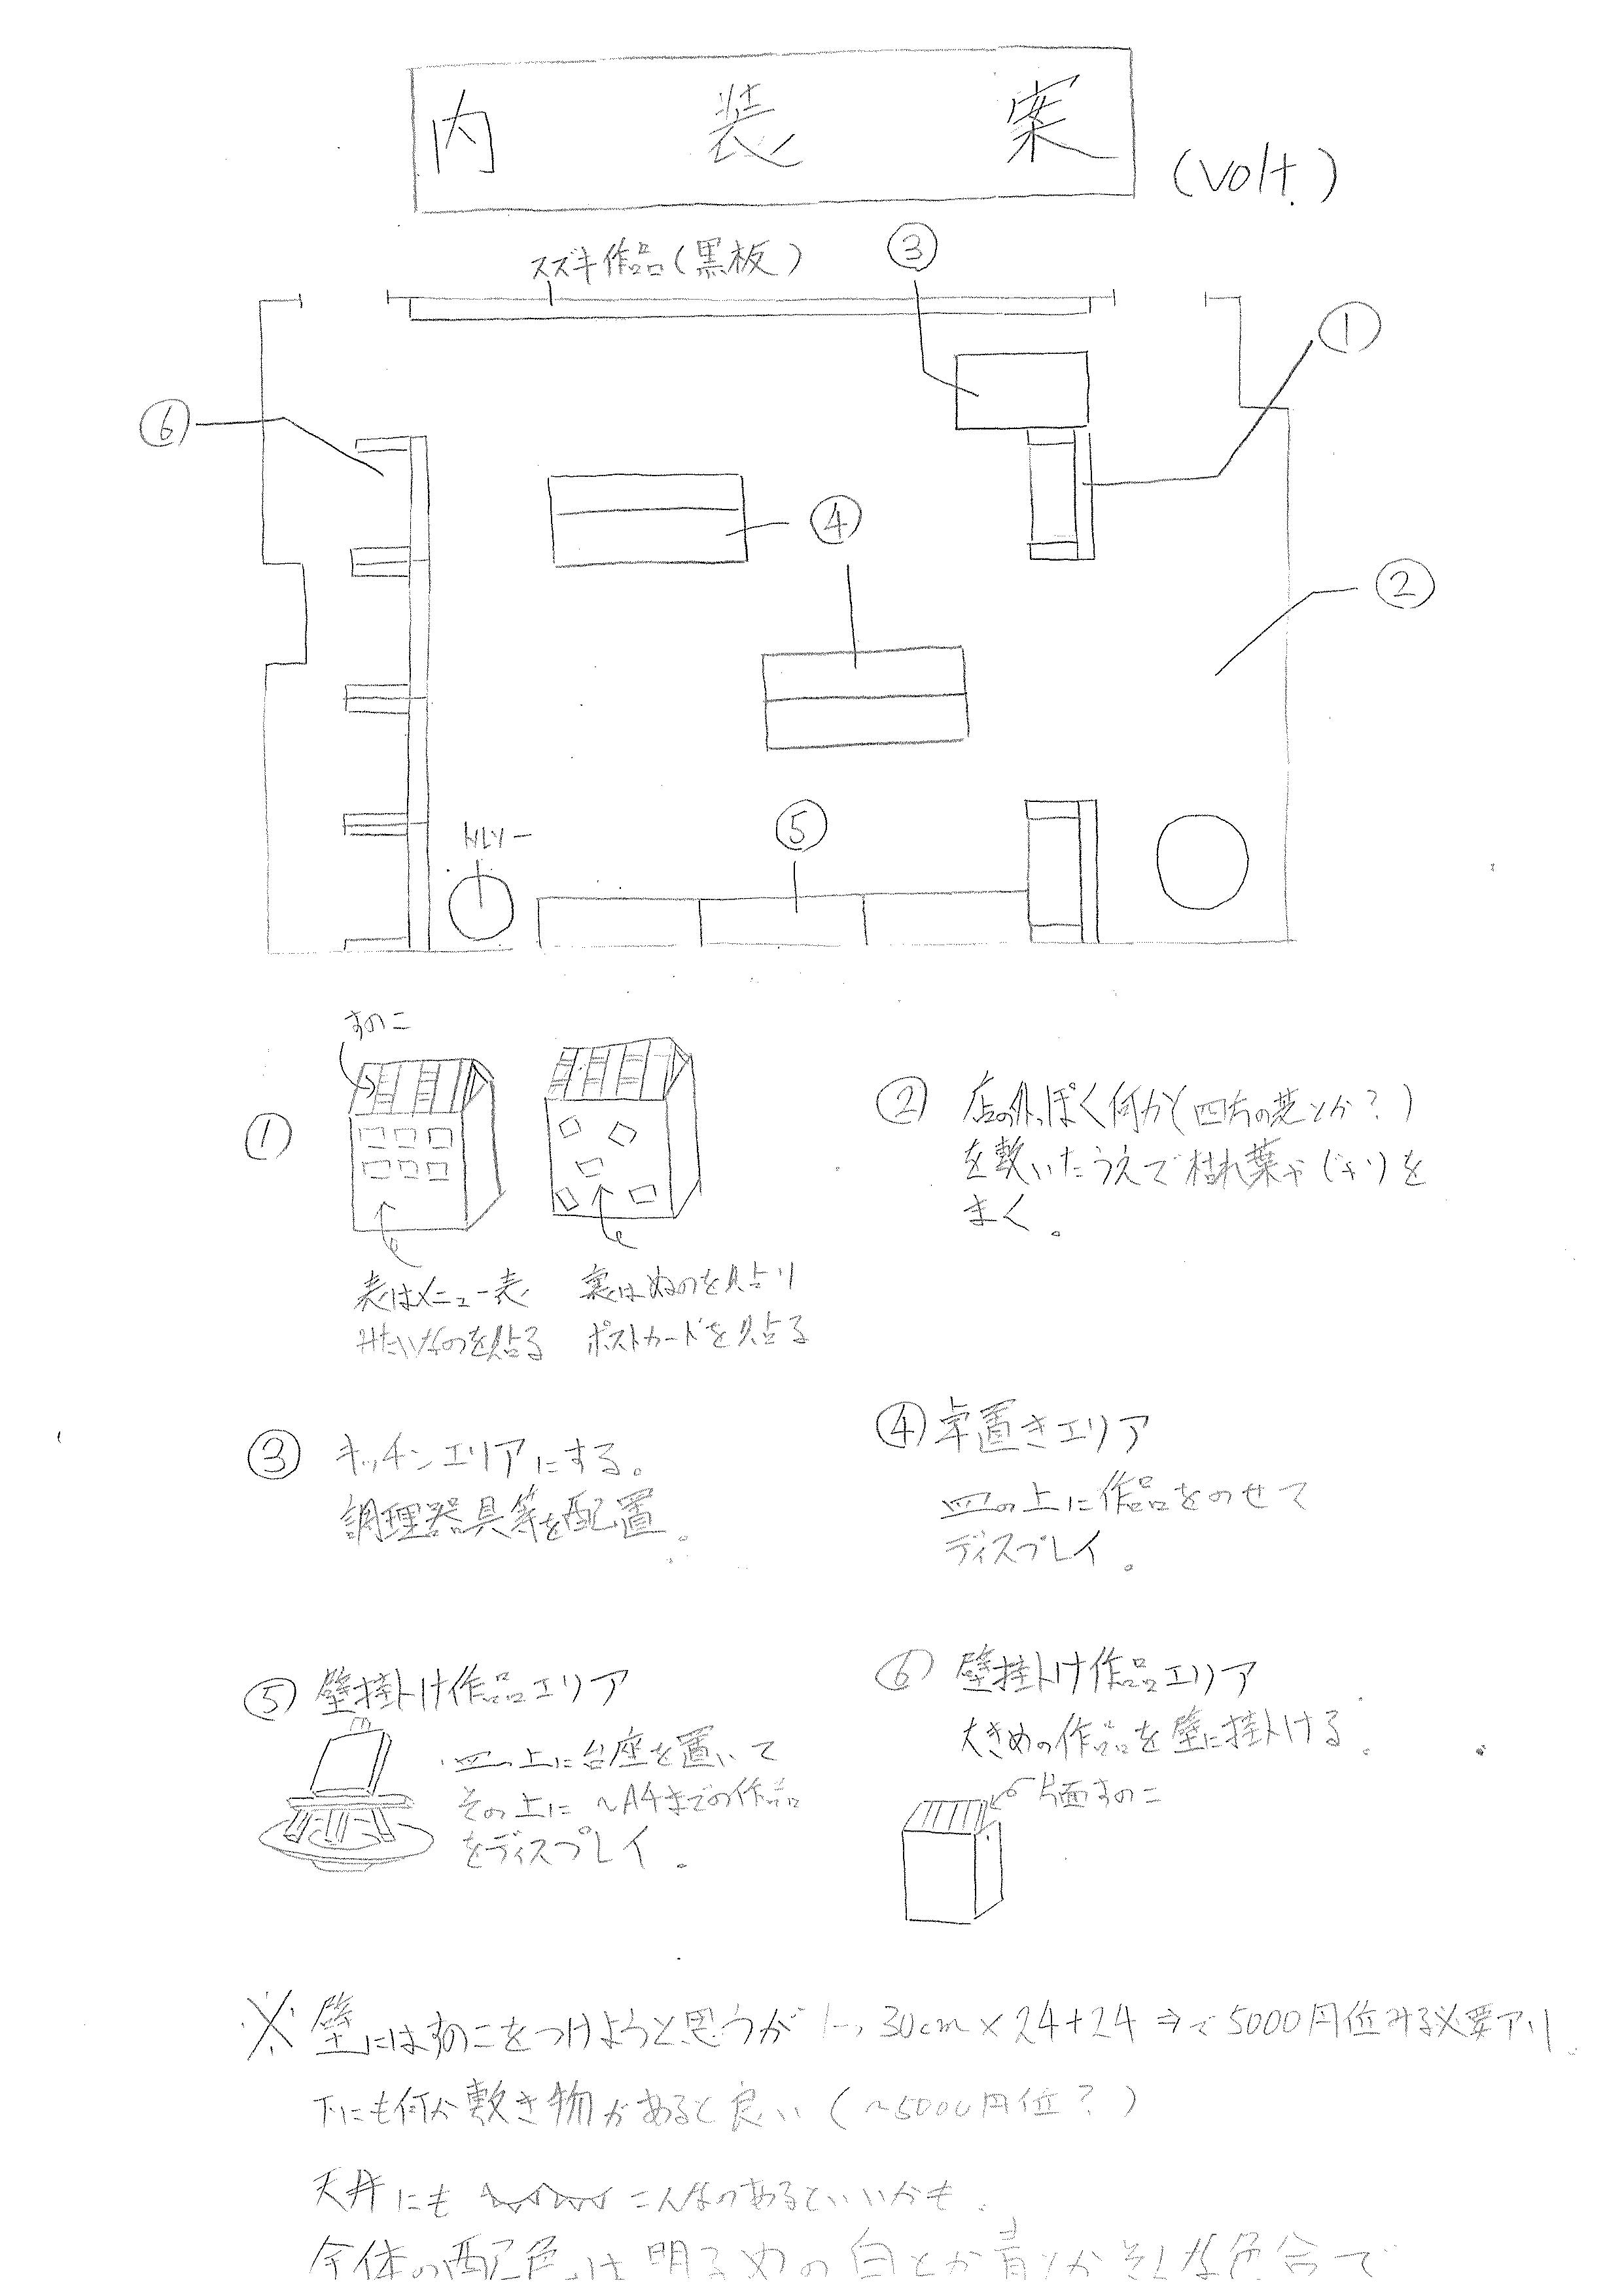 内装案
(volt.)
スズキ作品(黒板)
③
①
⑥
④
②
⑤
ツリー
すのこ
①
表はメニュー表
みたいなのを貼る
裏はぬのを貼り
ポストカードを貼る
② 店の外っぽく何か(四方の芝とか?)
を敷いたうえで枯れ葉や(
)を
まく。
③ キッチンエリアにする。
調理器具等を配置。
④ 卓置きエリア
皿の上に作品をのせて
ディスプレイ。
⑤ 壁掛け作品エリア
皿の上に台座を置いて
その上に ~A4までの作品
をディスプレイ。
⑥ 壁掛け作品エリア
大きめの作品を壁に掛ける。
片面すのこ
※ 壁にはすのこをつけようと思うが 1つ 30cm×24+24 ⇒で5000円位みる必要アリ。
下にも何か敷き物があると良い (~5000円位?)
天井にも こんなのあるといいかも。
全体の配色は明るめの白とか青とかそんな色合で